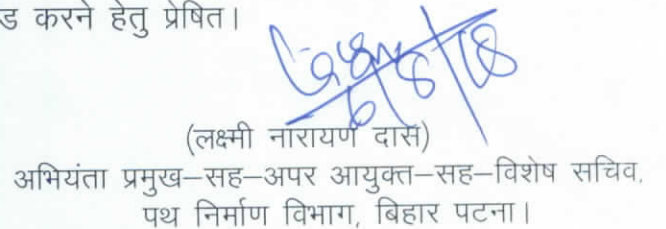 ड करने हेतु प्रेषित।
6/8/18
(लक्ष्मी नारायण दास)
अभियंता प्रमुख–सह–अपर आयुक्त–सह–विशेष सचिव,
पथ निर्माण विभाग, बिहार पटना।